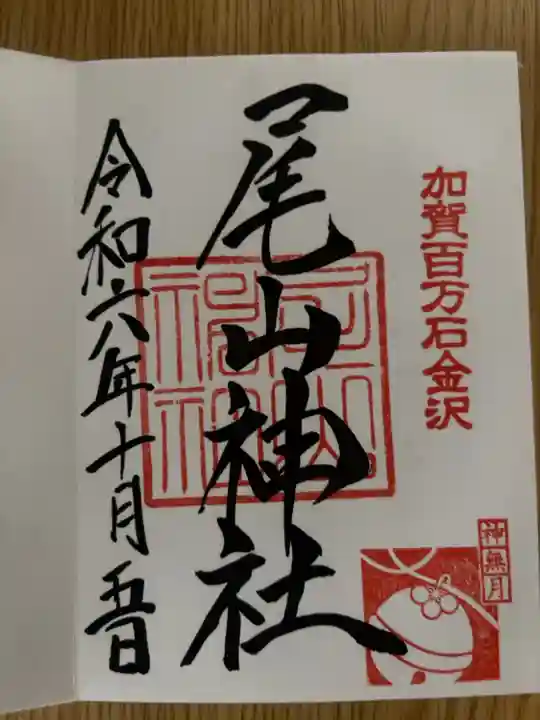 加賀百万石金沢
神無月
尾山神社
令和六年十月五日